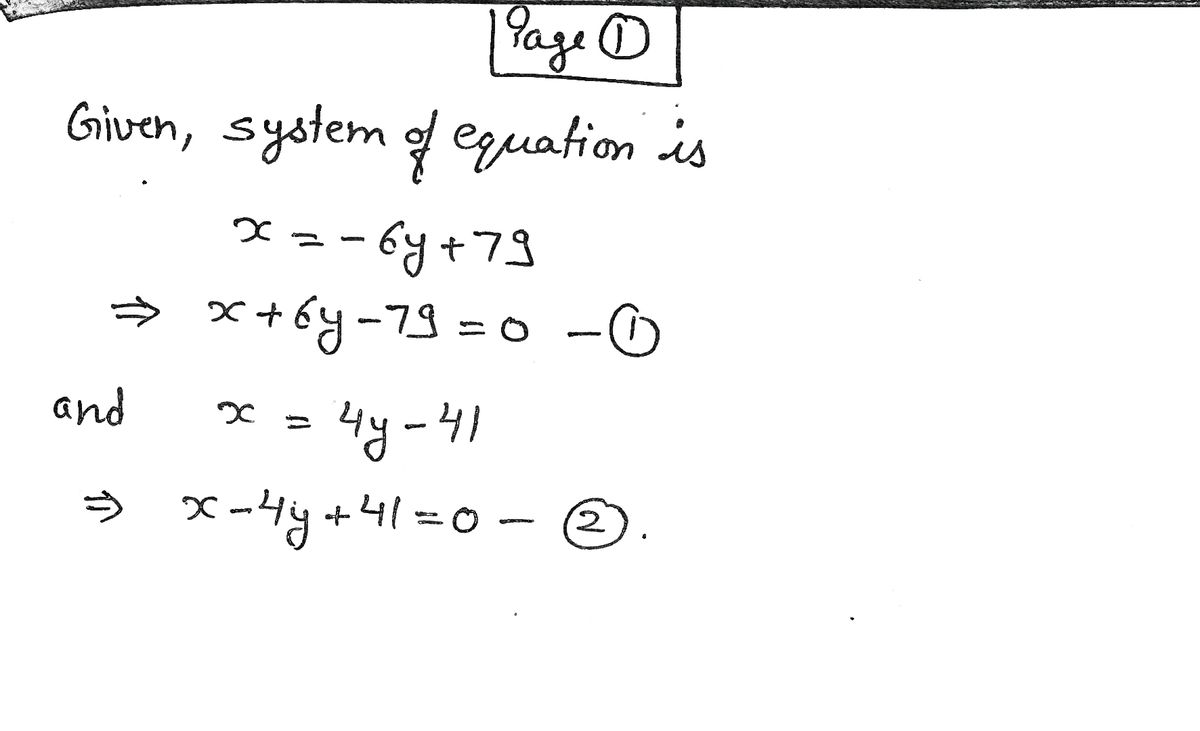 Page ①
Given, system of equation is
x = - 6y + 79
⇒ x + 6y - 79 = 0 - ①
and x = 4y - 41
⇒ x - 4y + 41 = 0 - ②.